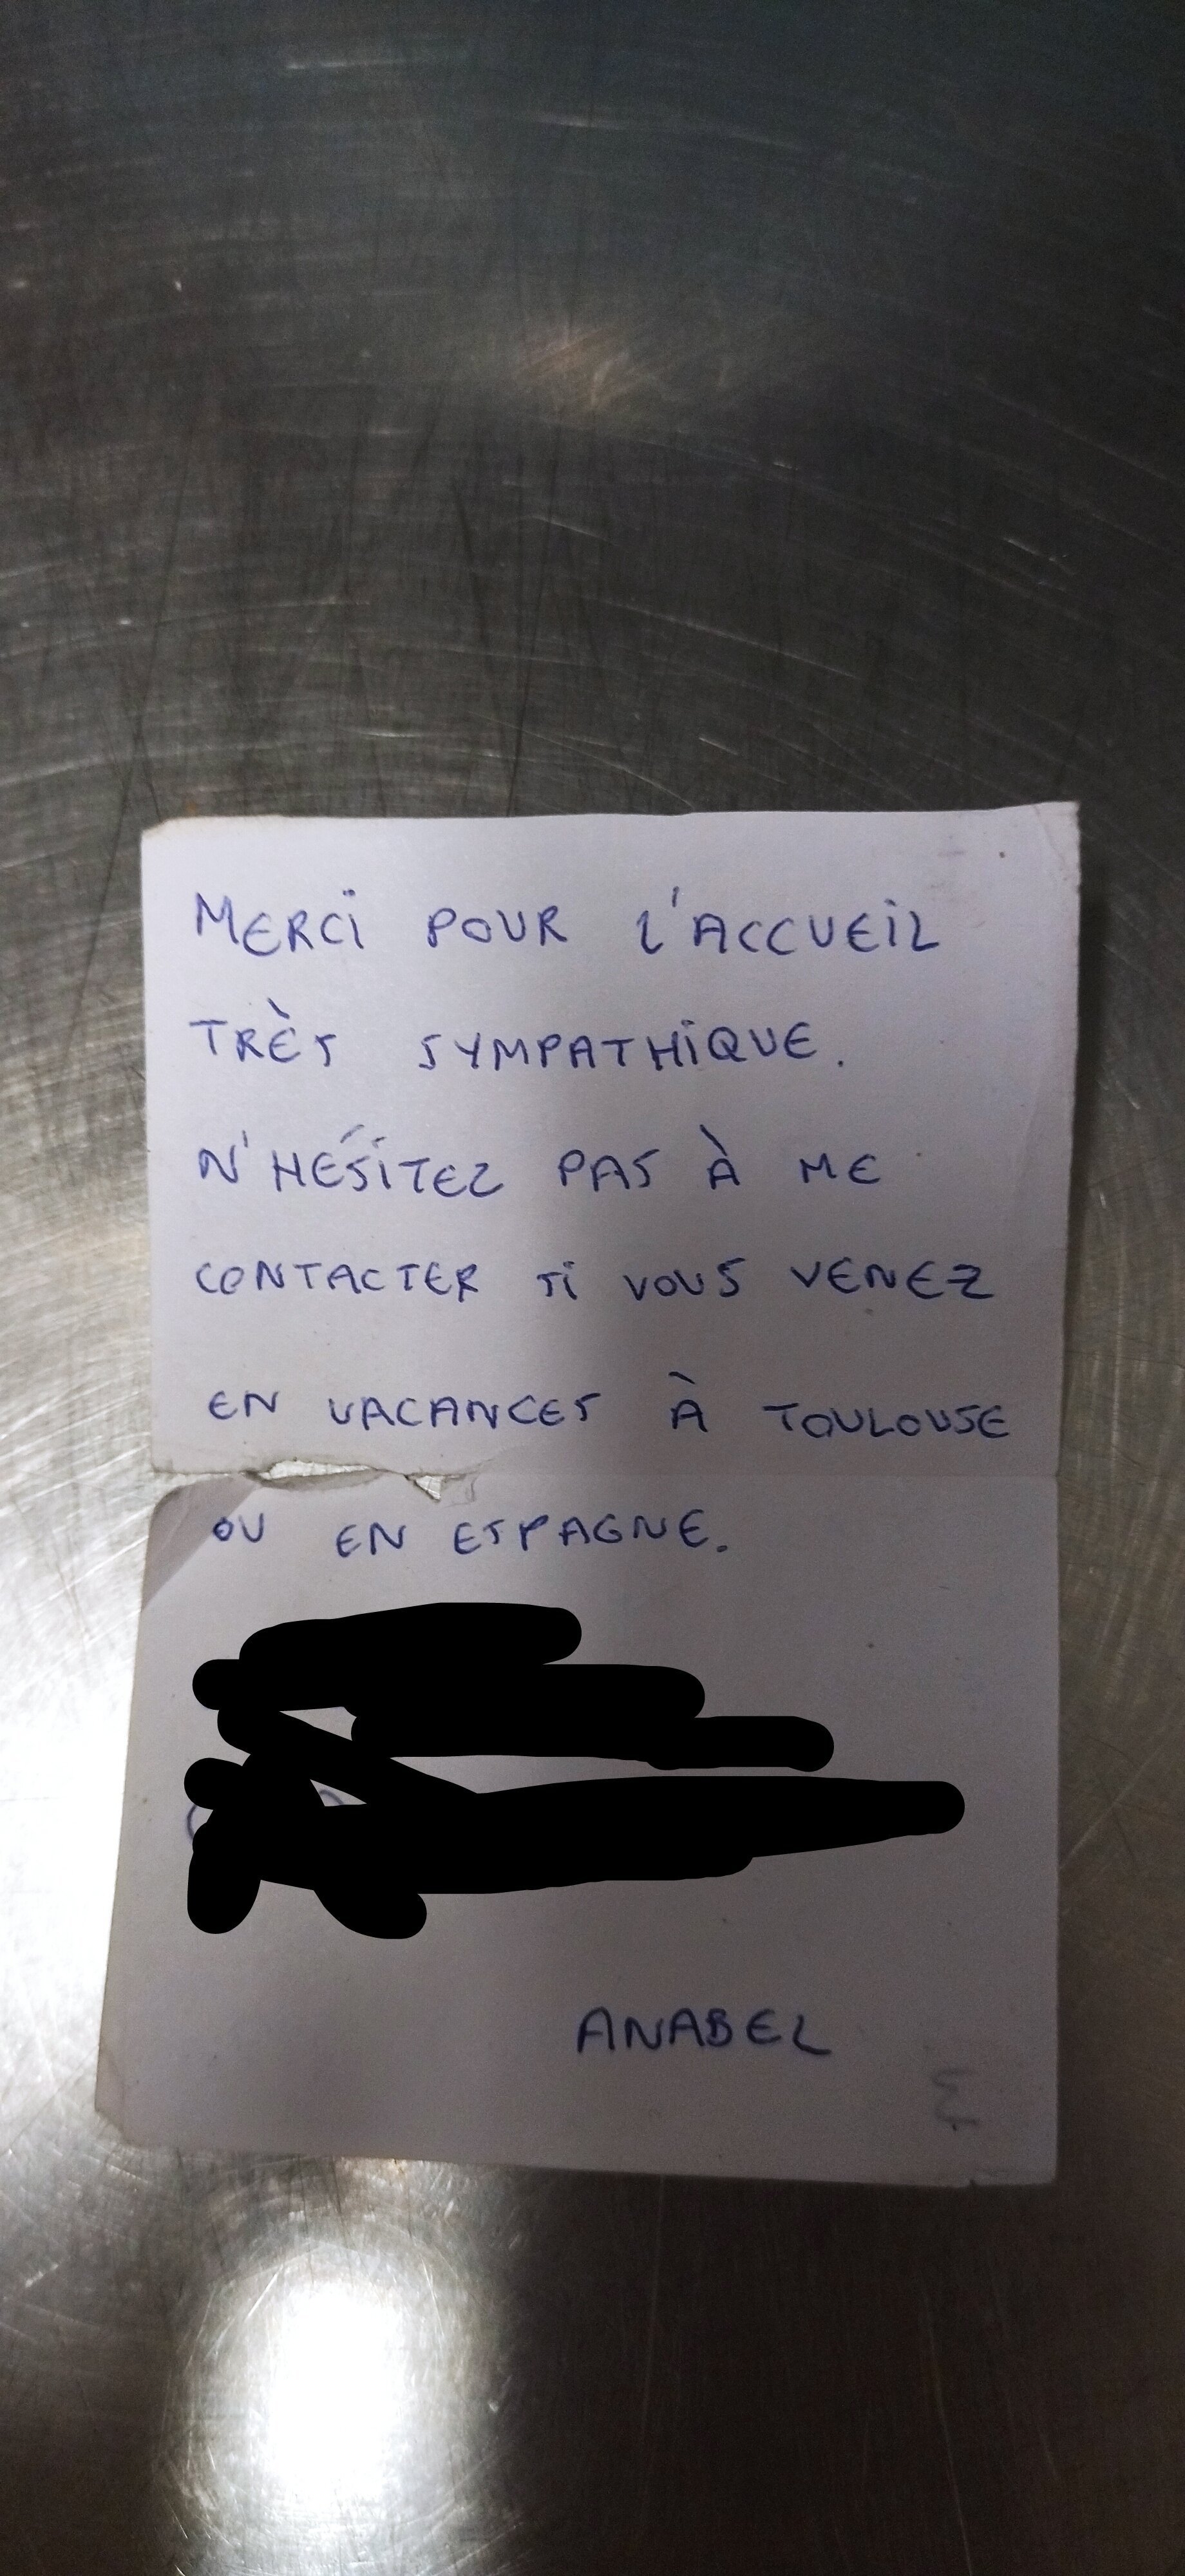 MERCI POUR L'ACCUEIL
TRÈS SYMPATHIQUE.
N'HÉSITEZ PAS À ME
CONTACTER SI VOUS VENEZ
EN VACANCES À TOULOUSE
OU EN ESPAGNE.
ANABEL